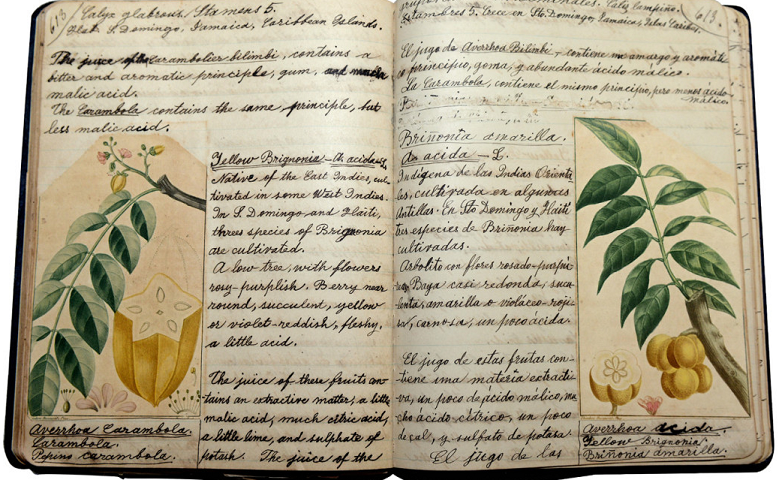 613
Calyx glabrous, Stamens 5.
Hati, S. Domingo, Jamaica, Caribbean Islands.
The juice of the Carambolier bilimbi, contains a
bitter and aromatic principle, gum, and much
malic acid.
The Carambola contains the same principle, but
less malic acid.
Yellow Brignonia - A. acida L.
Native of the East Indies, cul-
tivated in some West Indies.
In S. Domingo and Haiti,
threes species of Brignonia
are cultivated.
A low tree, with flowers
rosy-purplish. Berry near
round, succulent, yellow
or violet-reddish, fleshy,
a little acid.
The juice of these fruits con-
tains an extractive matter, a little
malic acid, much citric acid,
a little lime, and sulphate of
potash. The juice of the
Averrhoa Carambola.
Carambola.
Pepino carambola.
613.
Cáliz lampiño.
Estambres 5. Crece en Sto. Domingo, Jamaica, Islas Caribes.
El jugo de Averrhoa Bilimbi, contiene un amargo y aromáti-
co principio, goma, y abundante ácido malico.
La Carambola, contiene el mismo principio, pero menos ácido
málico.
Briñonia amarilla.
A. acida - L.
Indígena de las Indias Orienta-
les, cultivada en algunas
Antillas. En Sto Domingo y Haití
tres especies de Briñonia hay
cultivadas.
Arbolito con flores rosado-purpú-
reas. Baya casi redonda, sucu-
lenta, amarilla o violáceo-roji-
za, carnosa, un poco ácida.
El jugo de estas frutas con-
tiene una materia extracti-
va, un poco de ácido málico, mu-
cho ácido cítrico, un poco
de cal, y sulfato de potasa.
El jugo de las
Averrhoa acida.
Yellow Brignonia.
Briñonia amarilla.